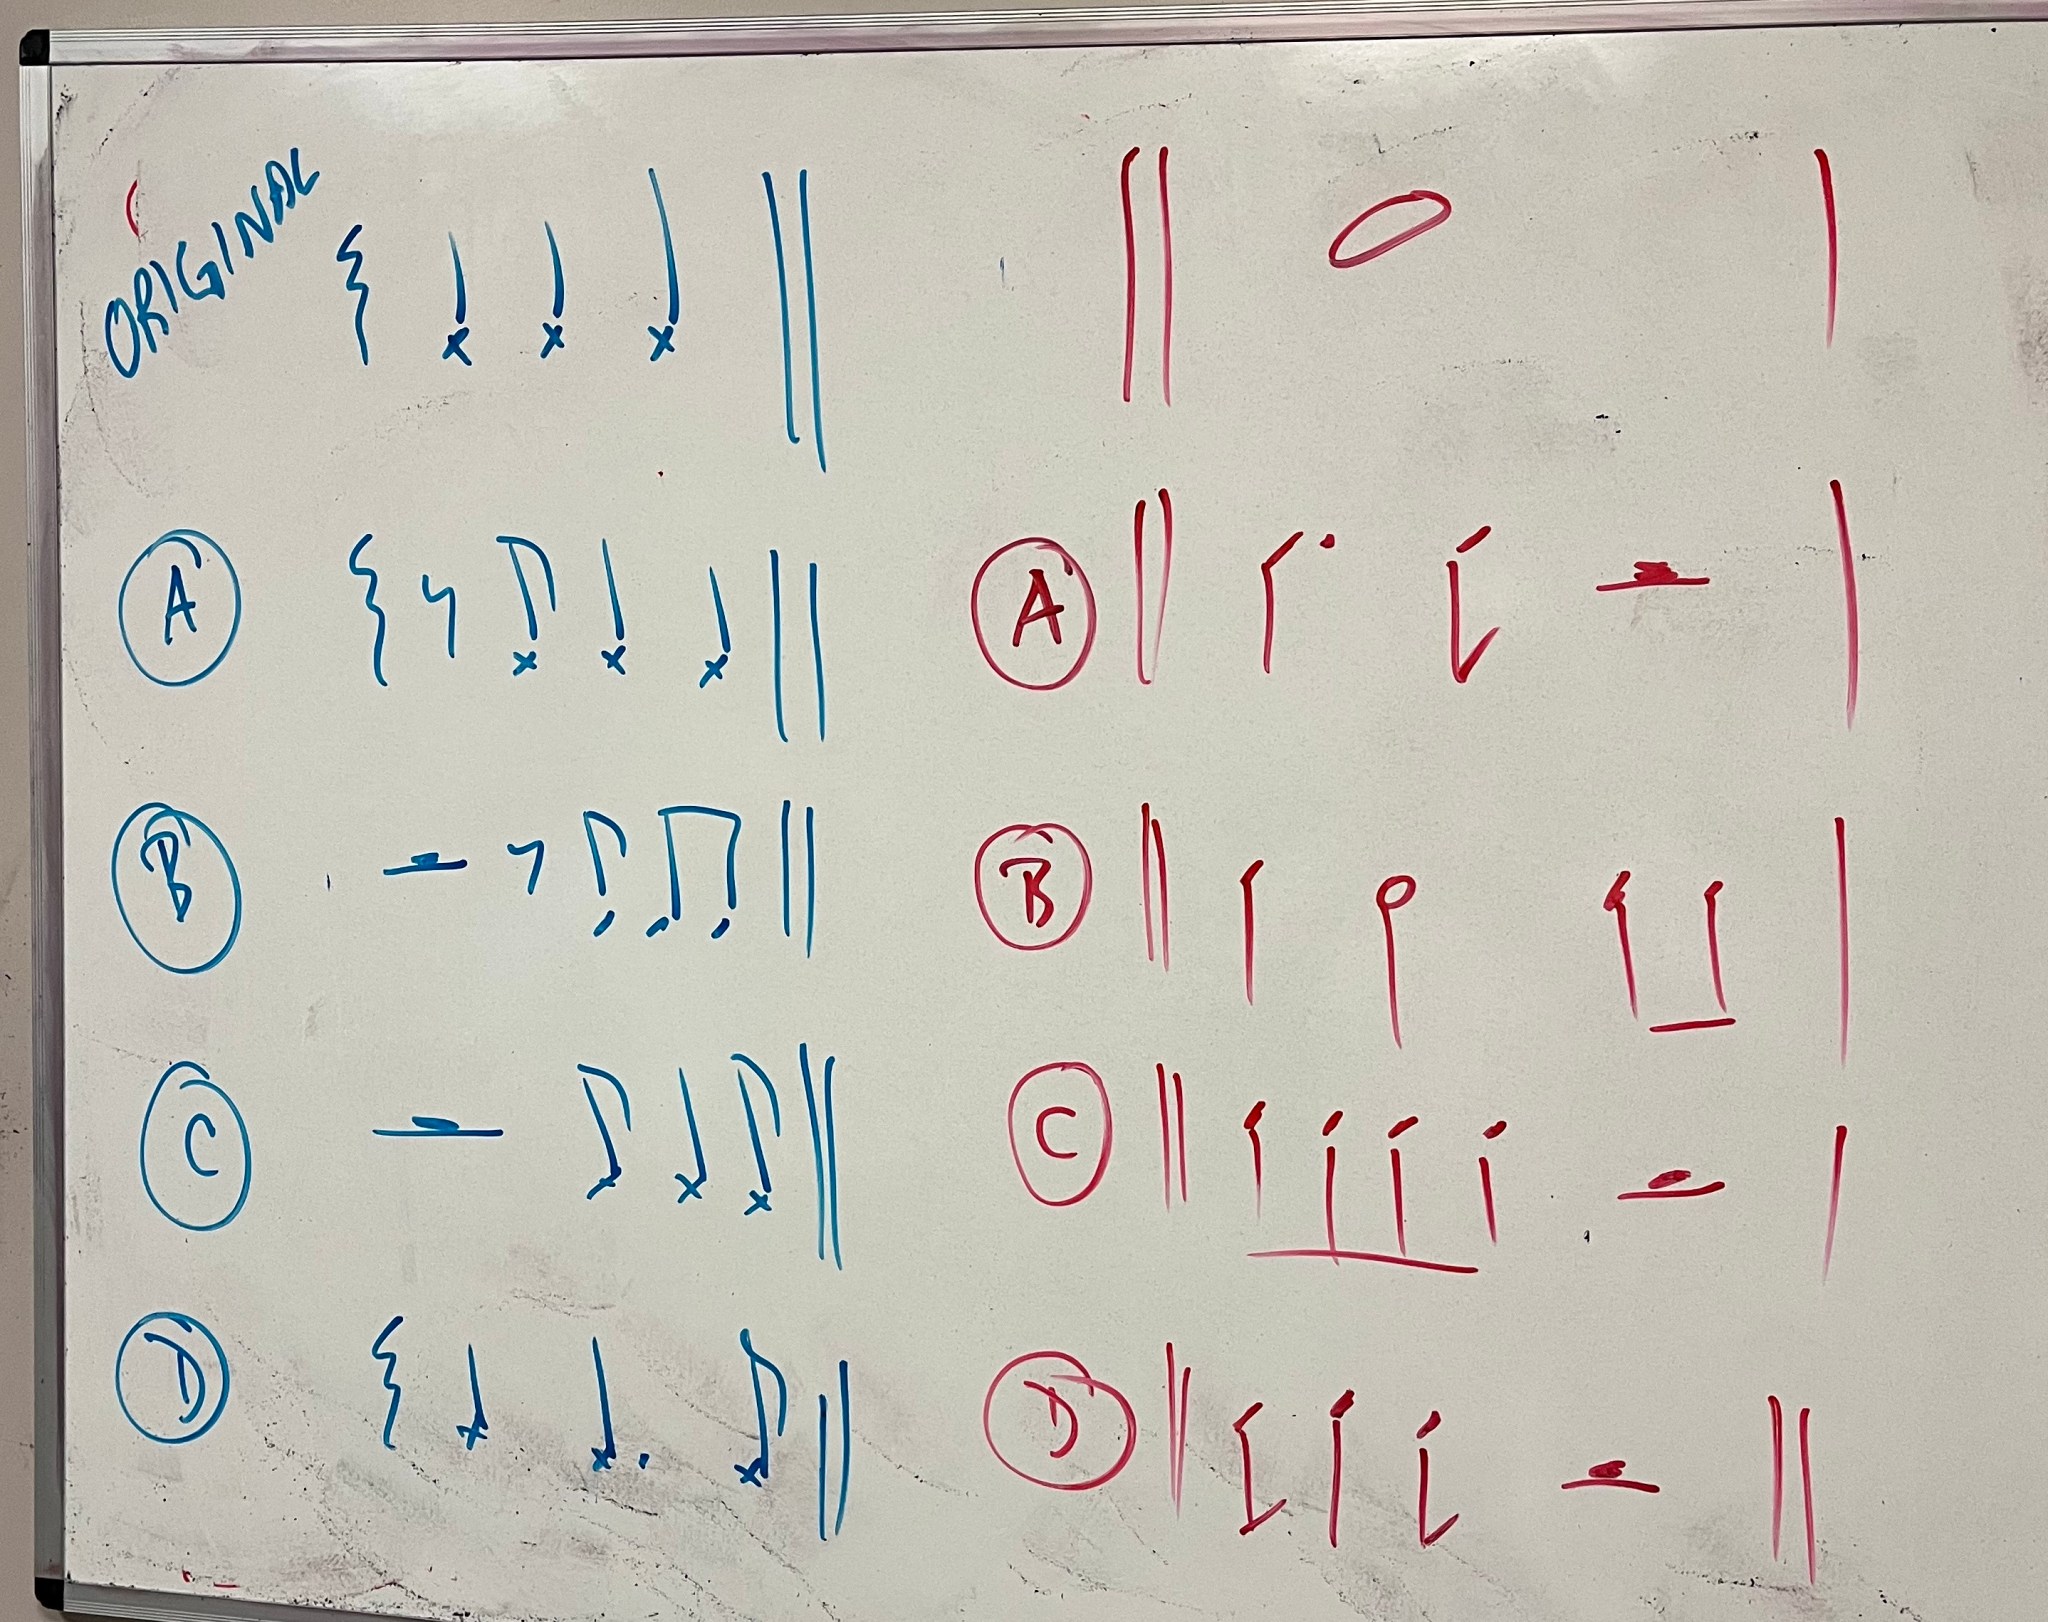 ORIGINAL
A
A
B
B
C
C
D
D